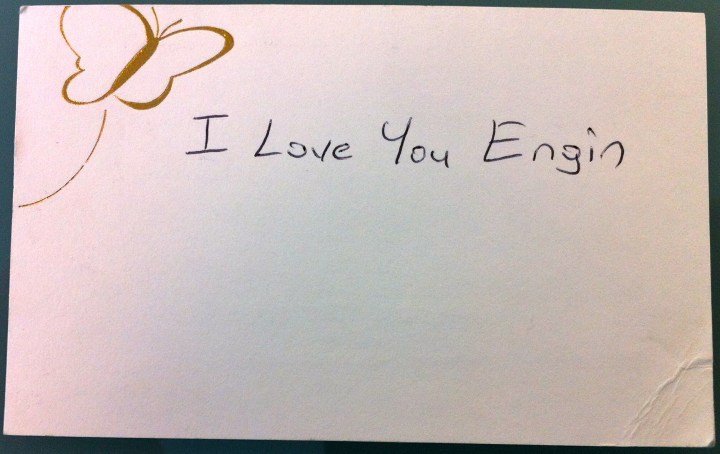 I Love You Engin